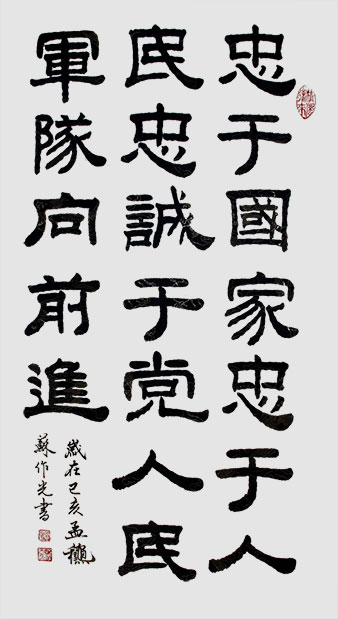 忠于國家忠于人
民忠誠于党人民
軍隊向前進
歲在己亥孟穐
蘇作光書